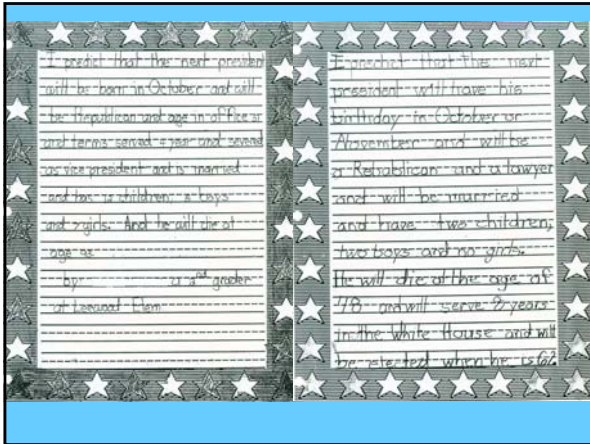 I predict that the next president
will be born in October and will
be Republican and age in office
and terms served 4 year and severed
as vice president and is married
and has children, boys
and girls. And he will die at
age
by a 2nd grader
at Leewood Elem
I predict that the next
president will have his
birthday in October or
November and will be
a Rebablican and a lawyer
and will be married
and have two children,
two boys and no girls.
He will die at the age of
78 and will serve 8 years
in the White House and will
be elected when he is 62.